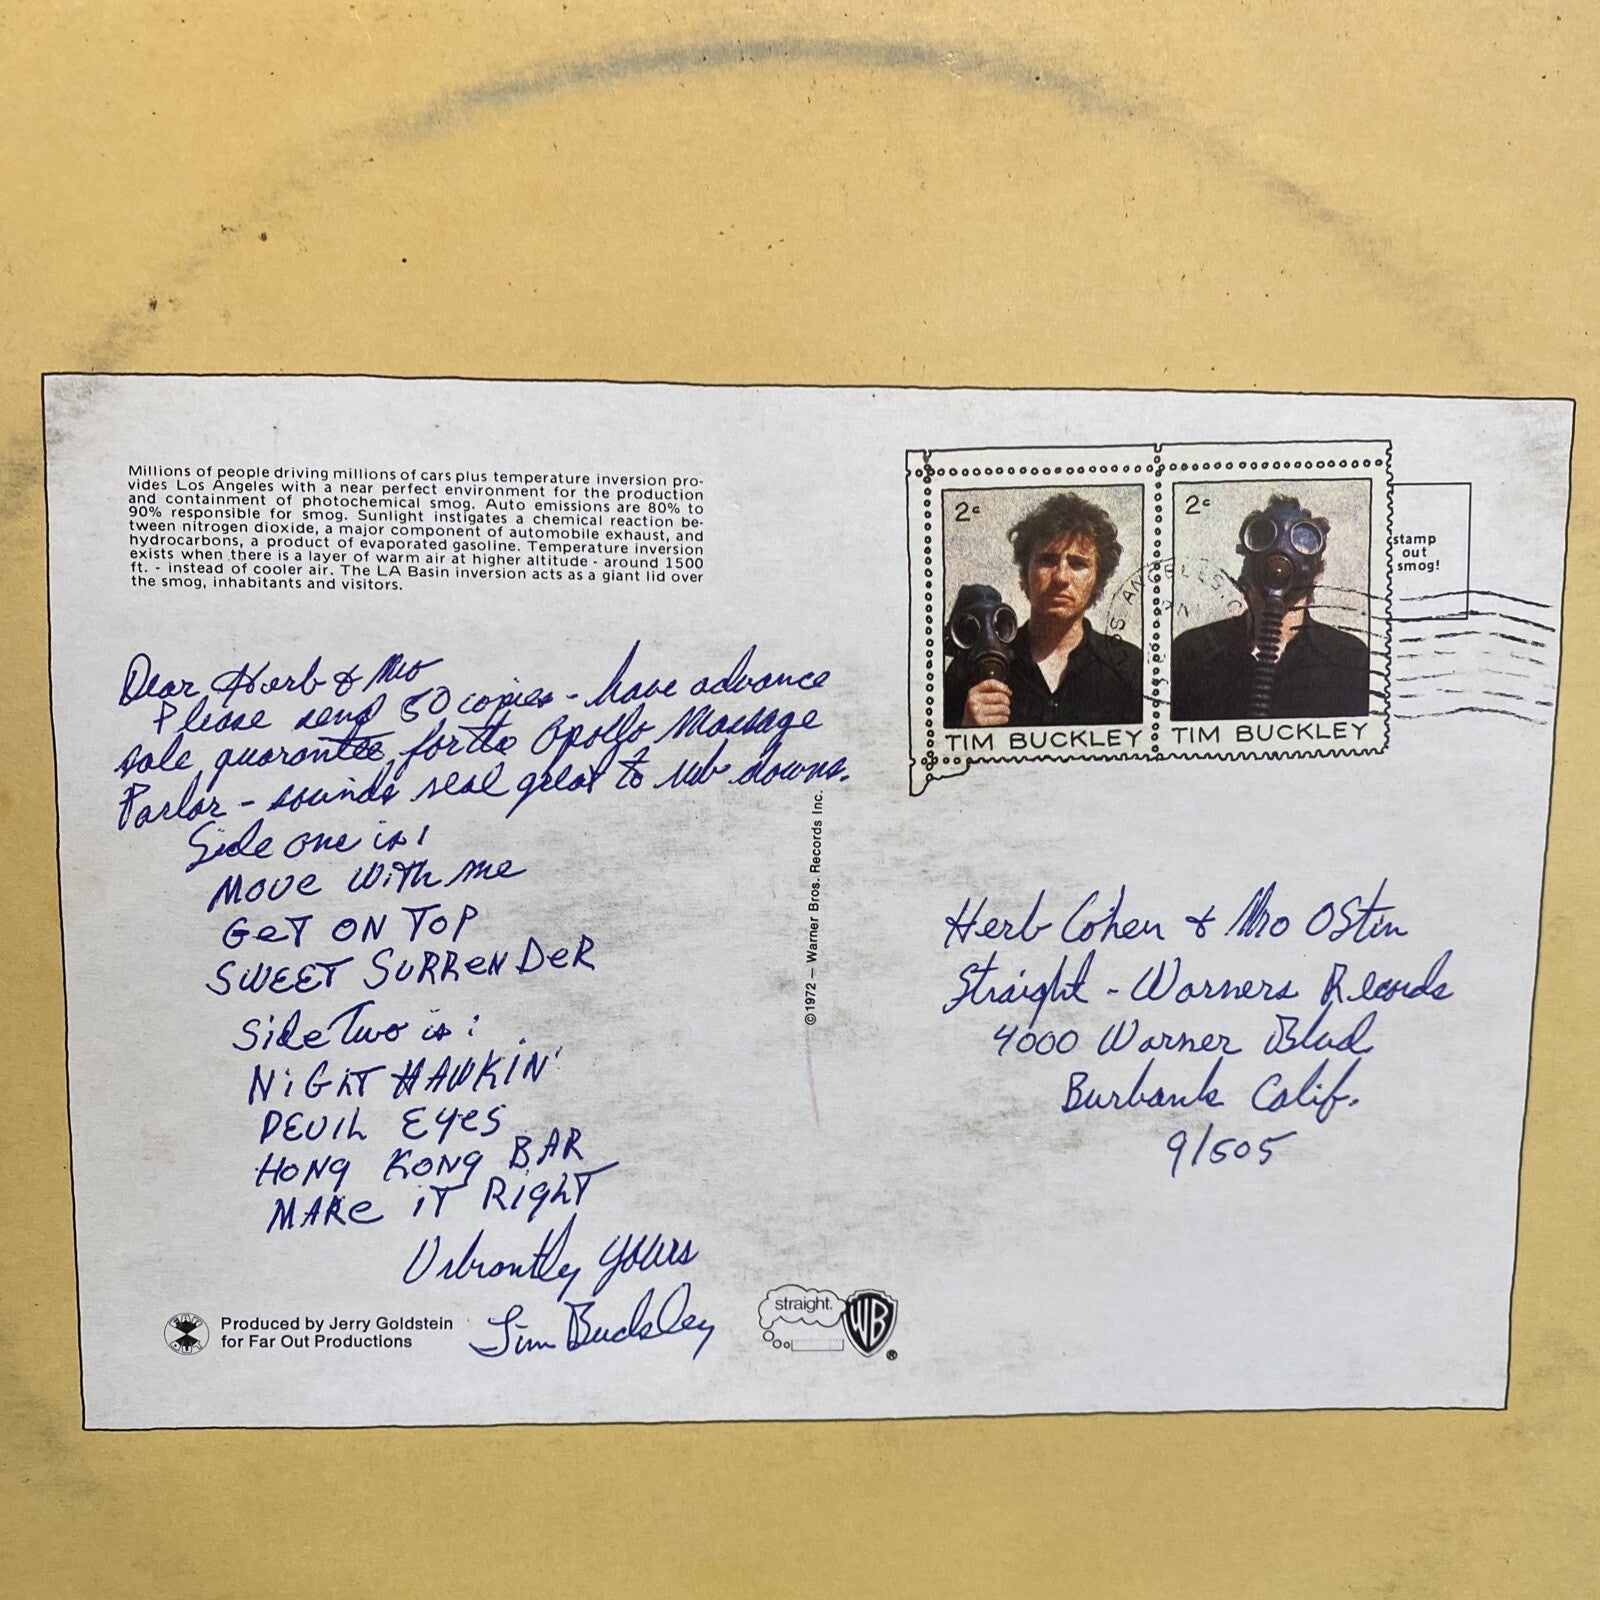 Millions of people driving millions of cars plus temperature inversion pro-
vides Los Angeles with a near perfect environment for the production
and containment of photochemical smog. Auto emissions are 80% to
90% responsible for smog. Sunlight instigates a chemical reaction be-
tween nitrogen dioxide, a major component of automobile exhaust, and
hydrocarbons, a product of evaporated gasoline. Temperature inversion
exists when there is a layer of warm air at higher altitude - around 1500
ft. - instead of cooler air. The LA Basin inversion acts as a giant lid over
the smog, inhabitants and visitors.
Dear Herb & Mo
Please send 50 copies - have advance
sale guarantee for the Apollo Massage
Parlor - sounds real great to rub downs.
Side one is:
MOVE WITH me
GeT ON TOP
SWEET SURReNDeR
Side Two is:
NiGHT HAWKIN'
DEVIL EYeS
HONg KONg BAR
MAKe iT RigHT
Vibrantly yours
Tim Buckley
Produced by Jerry Goldstein
for Far Out Productions
straight.
WB
®
©1972 – Warner Bros. Records Inc.
2c
2c
TIM BUCKLEY
TIM BUCKLEY
LOS ANGELES, C
PM
stamp
out
smog!
Herb Cohen & Mo OStin
Straight - Warners Records
4000 Warner Blvd.
Burbank Calif.
91505